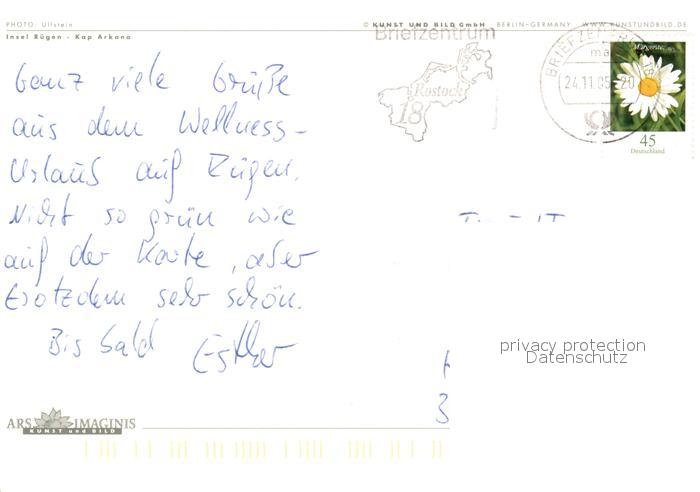 PHOTO: Ullstein
© KUNST UND BILD GmbH BERLIN-GERMANY · WWW.KUNSTUNDBILD.DE
Insel Rügen - Kap Arkona
Briefzentrum
Rostock
18
BRIEFZENTRUM
24.11.05-20
Margerite
45
Deutschland
Ganz viele Grüße
aus dem Wellness-
Urlaub auf Rügen.
Nicht so grün wie
auf der Karte, aber
trotzdem sehr schön.
Bis bald Esther
privacy protection
Datenschutz
3
ARS IMAGINIS
KUNST und BILD